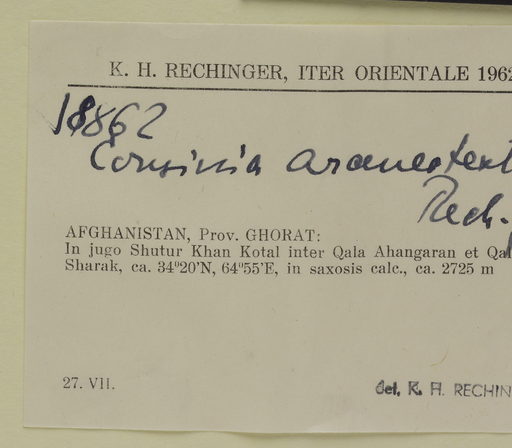 K. H. RECHINGER, ITER ORIENTALE 1962
18862
Cousinia
Rech.
AFGHANISTAN, Prov. GHORAT:
In jugo Shutur Khan Kotal inter Qala Ahangaran et Qal
Sharak, ca. 34°20'N, 64°55'E, in saxosis calc., ca. 2725 m
27. VII.
det. K. H. RECHIN